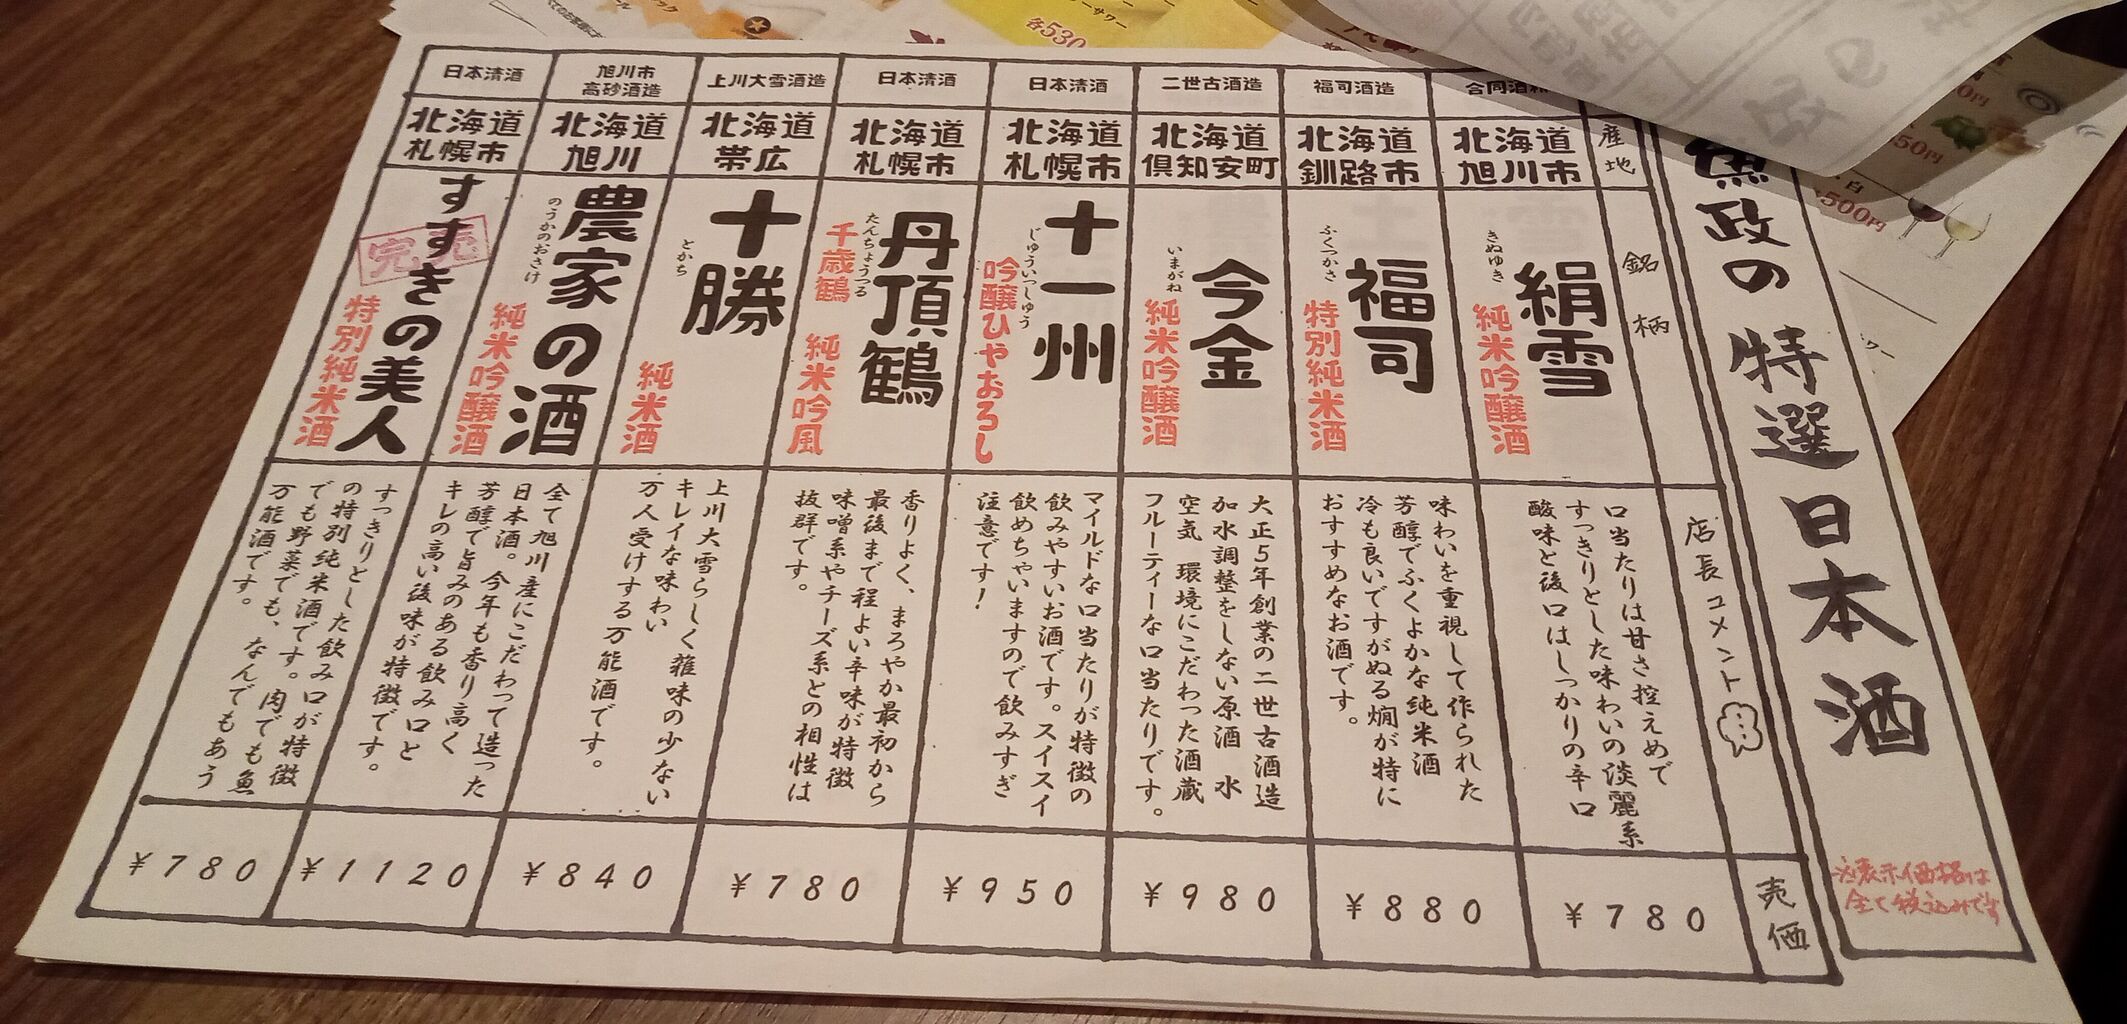 魚政の特選日本酒
※表示価格は
全て税込みです
産地
銘柄
店長コメント
売価
合同酒
北海道
旭川市
きぬゆき
絹雪
純米吟醸酒
口当たりは甘さ控えめで
すっきりとした味わいの淡麗系
酸味と後口はしっかりの辛口
¥780
福司酒造
北海道
釧路市
ふくつかさ
福司
特別純米酒
味わいを重視して作られた
芳醇でふくよかな純米酒
冷も良いですがぬる燗が特に
おすすめなお酒です。
¥880
二世古酒造
北海道
倶知安町
いまがね
今金
純米吟醸酒
大正5年創業の二世古酒造
加水調整をしない原酒 水
空気 環境にこだわった酒蔵
フルーティーな口当たりです。
¥980
日本清酒
北海道
札幌市
十一州
じゅういっしゅう
吟醸ひやおろし
マイルドな口当たりが特徴の
飲みやすいお酒です。スイスイ
飲めちゃいますので飲みすぎ
注意です!
¥950
日本清酒
北海道
札幌市
丹頂鶴
たんちょうつる
千歳鶴 純米吟風
香りよく、まろやか最初から
最後まで程よい辛味が特徴
味噌系やチーズ系との相性は
抜群です。
¥780
上川大雪酒造
北海道
帯広
十勝
とかち
純米酒
上川大雪らしく雑味の少ない
キレイな味わい
万人受けする万能酒です。
¥840
旭川市
高砂酒造
北海道
旭川
農家の酒
のうかのおさけ
純米吟醸酒
全て旭川産にこだわって造った
日本酒。今年も香り高く
芳醇で旨みのある飲み口と
キレの高い後味が特徴です。
¥1120
日本清酒
北海道
札幌市
すすきの美人
完売
特別純米酒
すっきりとした飲み口が特徴
の特別純米酒です。肉でも魚
でも野菜でも、なんでもあう
万能酒です。
¥780
各530